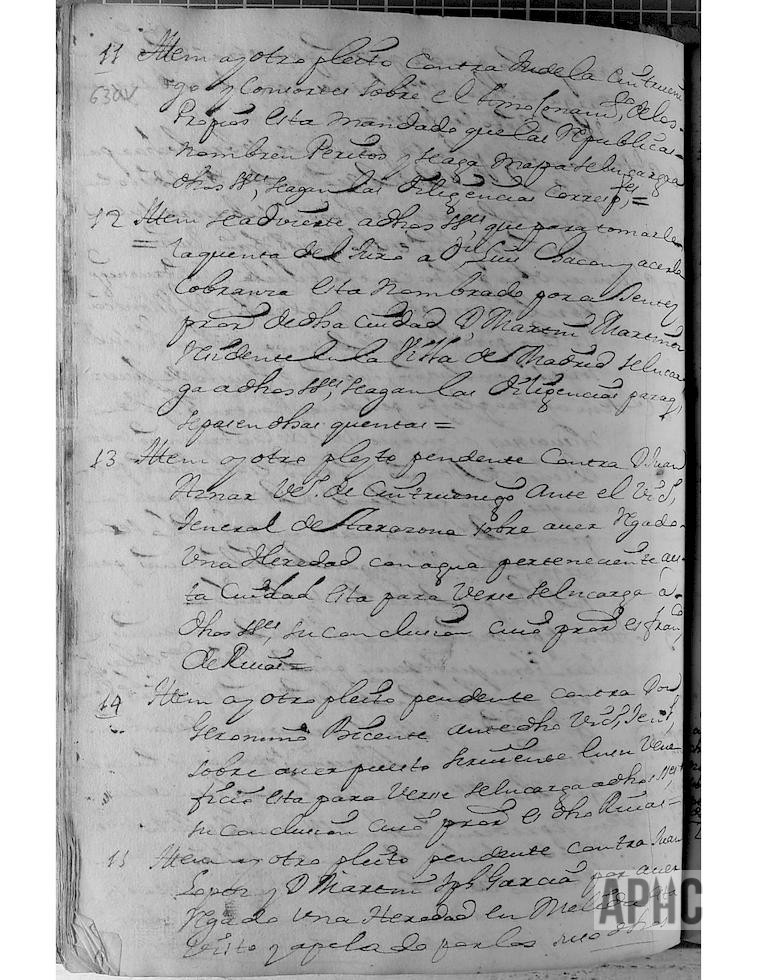 11 Ittem ay otro pleito Contra Tudela Cintrueni
630v
go y Consortes sobre el de los
Propios esta mandado que las Republicas
nombren Peritos y seaga mappa se encarga
dhos SSes, seagan las Diligencias Corresptes =
12 Ittem se advierte adhos SSes que para tomarle
= la quenta del Juro a Dn Luis Chacon y acer la
Cobranza esta Nombrado por
pror de dha Ciudad Dn Martin Martinez
Residente en la Villa de Madrid se encar
ga adhos SSes, seagan las Diligencias para q,
sepasen dhas quentas =
13 Ittem ay otro pleyto pendente Contra D Juan
Aznar Vezo de Cintruenigo Ante el Vicro
Jeneral de Tarazona sobre aver Regado
Una Heredad con agua perteneciente a es
ta Ciudad esta para Verse se encarga a
dhos SSes, su conclusion cuio pror es franco
de Ruias =
14 Ittem ay otro pleito pendente contra Don
Geronimo Bicente ante dho Vico, Jenl,
sobre aver puesto Sirviente en su Vene
ficio esta para Verse se encarga adhos SSes,
su conclusion cuio pror es dho Ruias =
15 Ittem ay otro pleito pendente contra Juan
Lopez y D Martin Jph Garcia por aver
Regado Una Heredad en
Visto y apelado por los
APHC